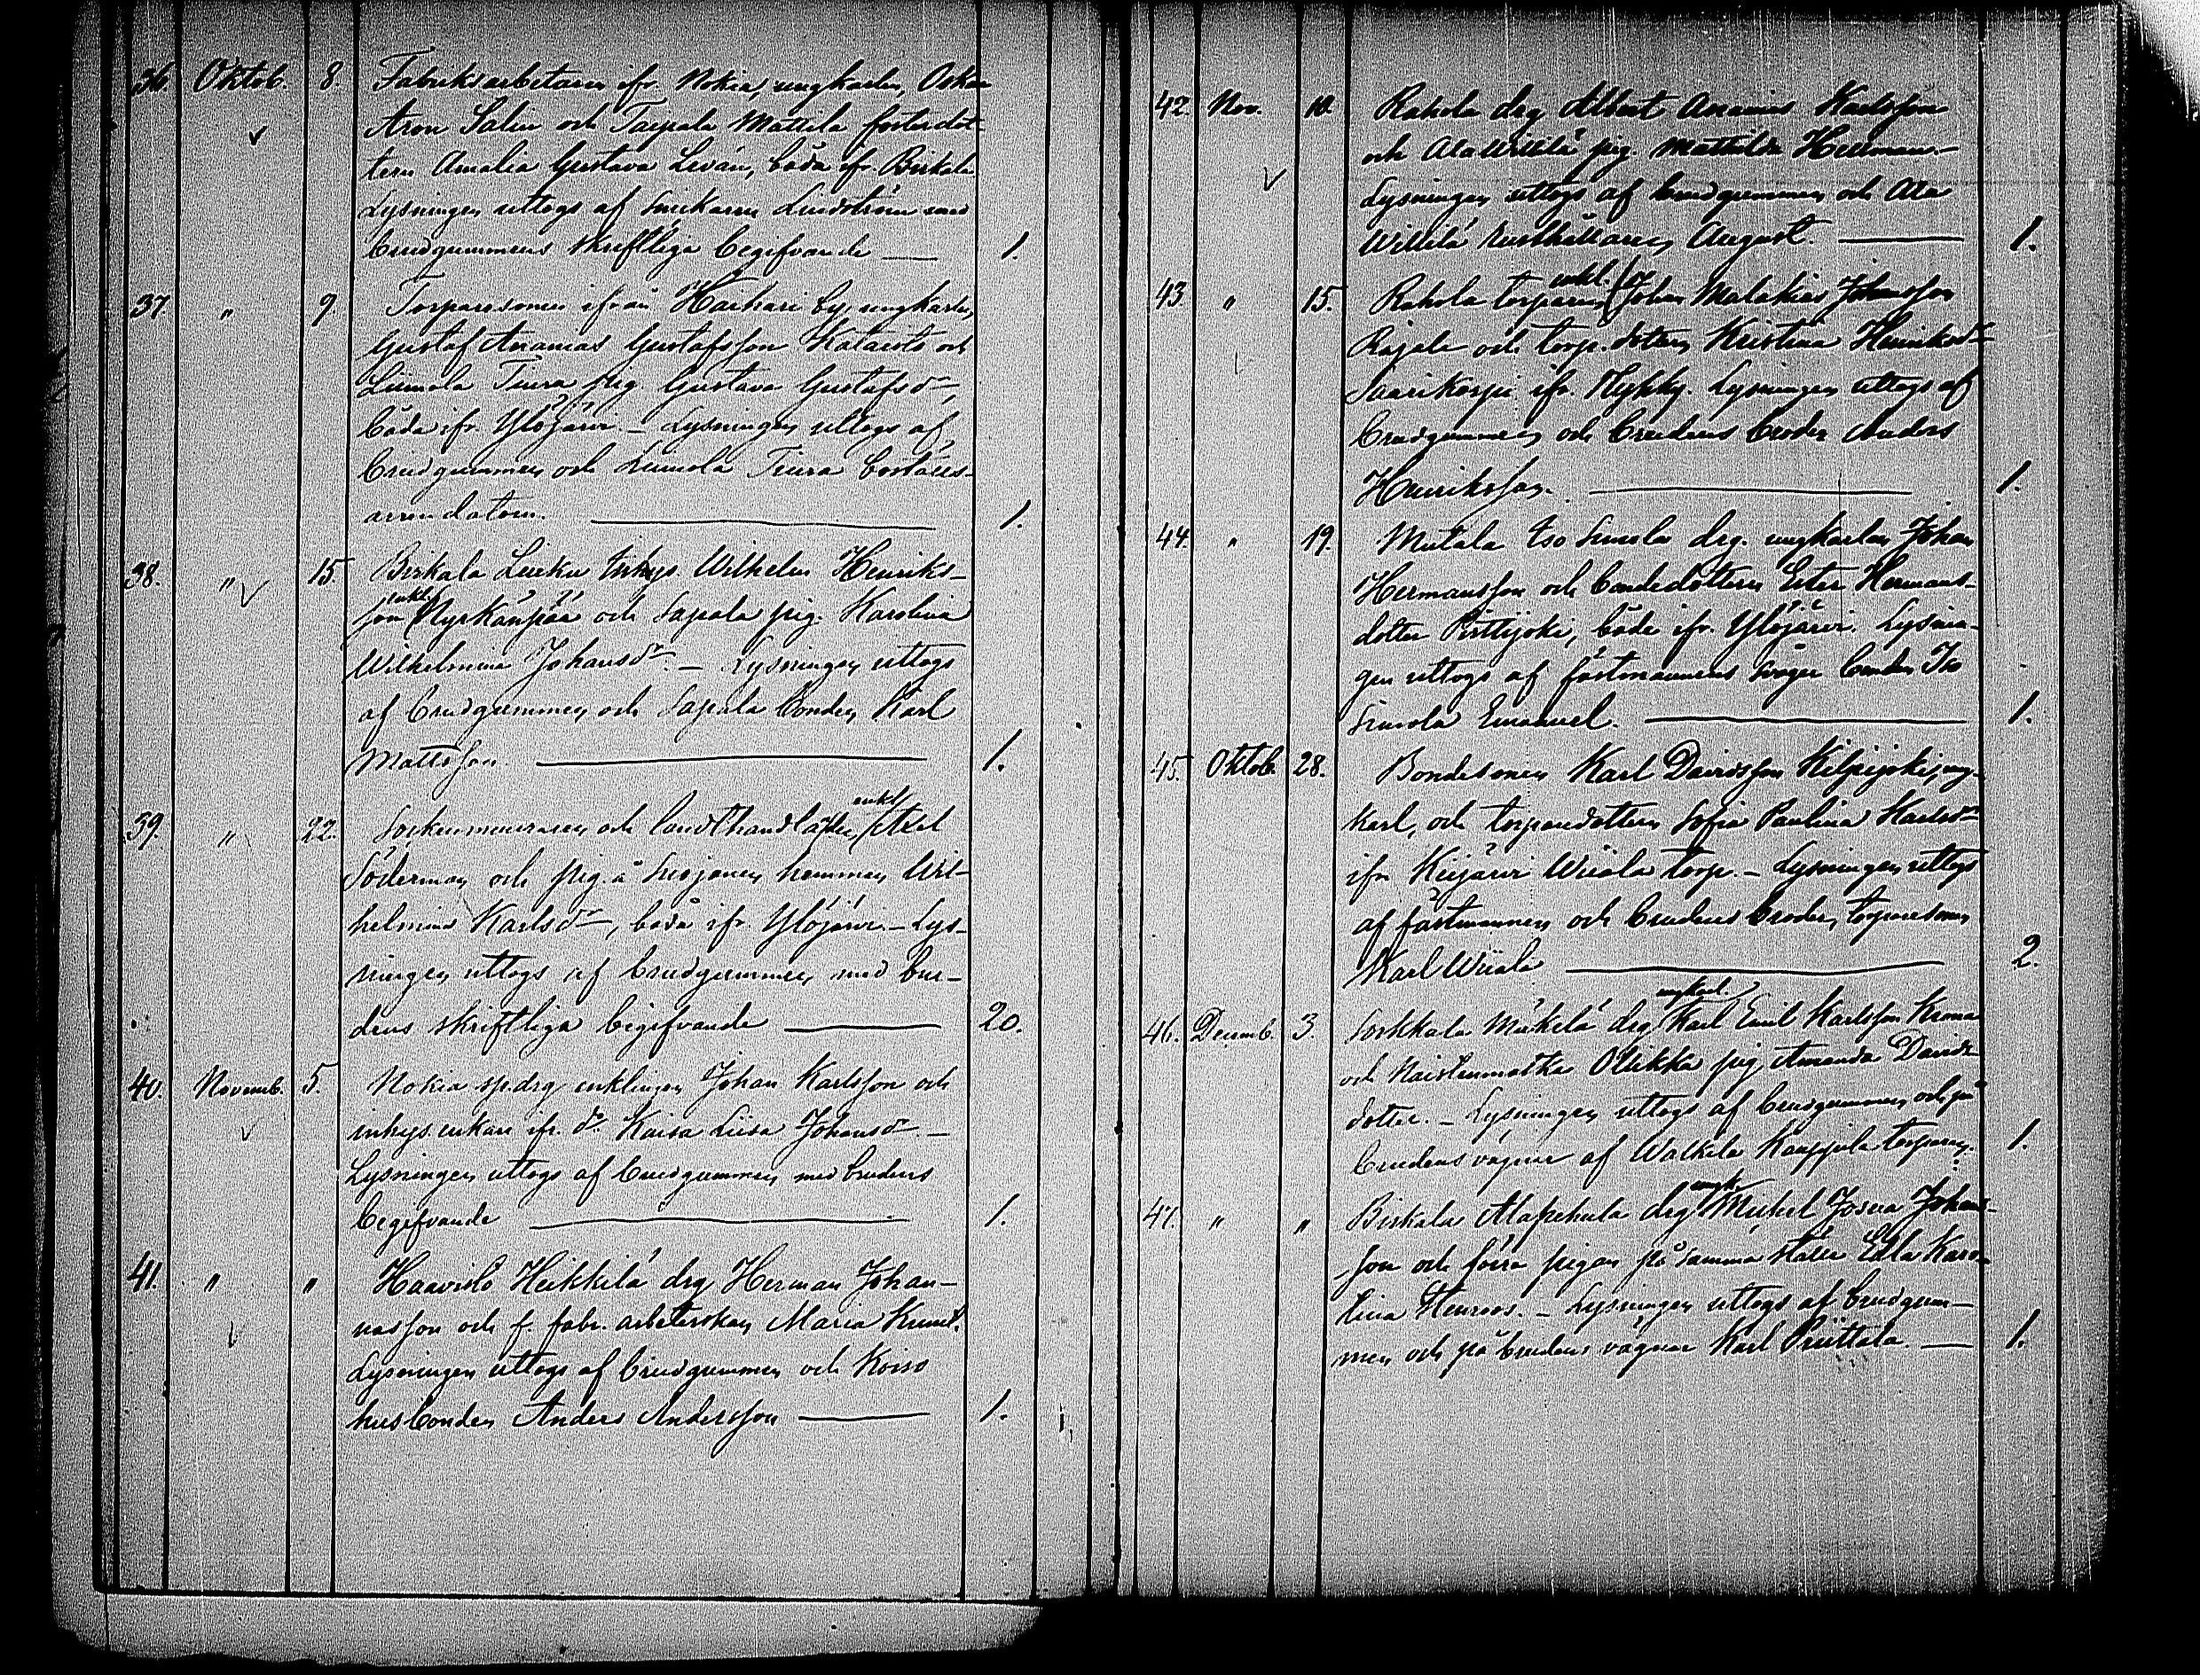 36. Oktob. 8. Fabriksarbetaren ifr. Nokia, ungkarlen, Oskar
Aron Salin och Taipale Mattila fosterdot-
tern Amalia Gustava Levän, båda fr. Birkala
Lysningen uttogs af snickaren Lindström med
brudgummens skriftliga begifvande — 1.
37. " 9. Torparesonen ifrån Harhari by, ungkarlen,
Gustaf Ananias Gustafsson Kataisto och
Liimola Tiura pig. Gustava Gustafsdr,
båda ifr. Ylöjärvi. — Lysningen uttogs af
brudgummen och Liimola Tiura boställs-
arrendatorn. — 1.
38. " 15. Birkala Lieku Inhys. Wilhelm Henriks-
son enkl. Nyrkänpää och Sapala pig. Karolina
Wilhelmina Johansdr. — Lysningen uttogs
af brudgummen och Sapala bonden Karl
Mattsson. — 1.
39. " 22. Sockenmuraren och landthandlaren, enkl. Axel
Söderman och pig. å hemman Wil-
helmina Karlsdr, båda ifr. Ylöjärvi. — Lys-
ningen uttogs af brudgummen med bru-
dens skriftliga begifvande — 20.
40. Novemb. 5. Nokia sp. drg, enklingen Johan Karlsson och
inhys. enkan ifr. do Kaisa Liisa Johansdr. —
Lysningen uttogs af brudgummen med brudens
begifvande — 1.
41. " " Haavisto Heikkilä drg Herman Johan-
nasson och f. fabr. arbeterskan Maria
Lysningen uttogs af brudgummen och Koiso
husbonden Anders Andersson — 1.
42. Nov. 10. Rahola drg Albert Ananias Karlsson
och Ala Willilä pig. Mathilda Hellman. —
Lysningen uttogs af brudgummen och Ala
Willilä rusthållaren August. — 1.
43. " 15. Rahola torparen, enkl. Johan Malakias Johansson
Rajala och torp. dottern Kristina Henriksdr
Saarikorpi ifr. Hyhky. Lysningen uttogs af
brudgummen och brudens broder Anders
Henriksson. — 1.
44. " 19. Mutala Iso Simola drg. ungkarlen Johan
Hermansson och bondedottern Ester Hermans-
dotter Pirttijoki, båda ifr. Ylöjärvi. Lysnin-
gen uttogs af fästmannens svåger bonden Iso
Simola Emanuel. — 1.
45. Oktob. 28. Bondesonen Karl Davidsson Kilpijoki, ung-
karl, och torparedottern Sofia Paulina Karlsdr
ifr. Keijärvi Wiiala torp. — Lysningen uttogs
af fästmannen och brudens broder, torparesonen
Karl Wiiala — 2.
46. Decemb. 3. Sorkkala Mäkelä drg ungkarl. Karl Emil Karlsson Krona
och Naistenmatka Ollikka pig. Amanda Davids-
dotter. — Lysningen uttogs af brudgummen och på
brudens vägnar af Walkila Kauppila torparen. 1.
47. " " Birkala Alapehula drg ungk. Mickel Josua Johans-
son och förra pigan på samma ställe Edla Karo-
lina Henroos. — Lysningen uttogs af brudgum-
men och på brudens vägnar Karl Priittala. — 1.